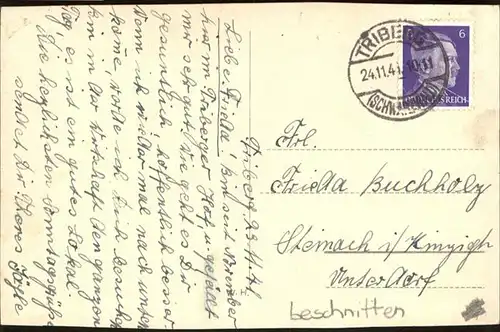 Triberg 23.11.41
Liebe Frieda! Bin seit November
hier im Triberger Hof, u. gefällt
mir sehr gut. Wie geht es Dir
gesundheitl. hoffentlich besser.
Wenn ich wieder mal nach unten
komme, werde ich Dich besuchen
bin in der Wirtschaft den ganzen
Tag, es ist ein gutes Lokal
Die herzlichsten Sonntagsgrüße
sendet Dir Deine
TRIBERG
24.11.41.10-11
(SCHWARZWALD)
6
DEUTSCHES REICH
Frl.
Frieda Buchholz
Steinach i/ Kinzigt
Unterdorf
beschnitten